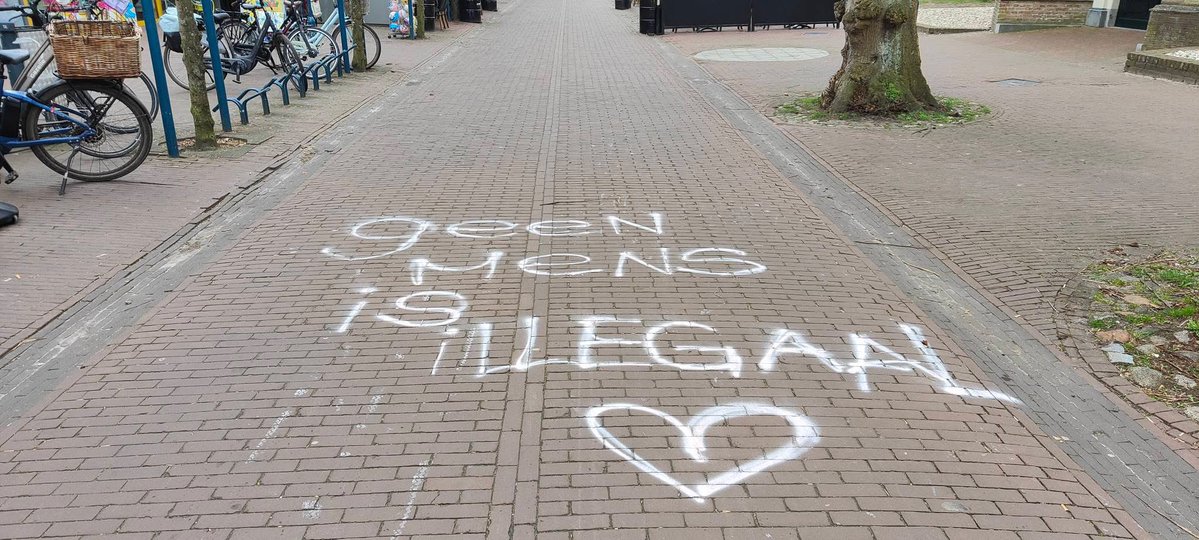 geen
mens
is
iLLEGAAL